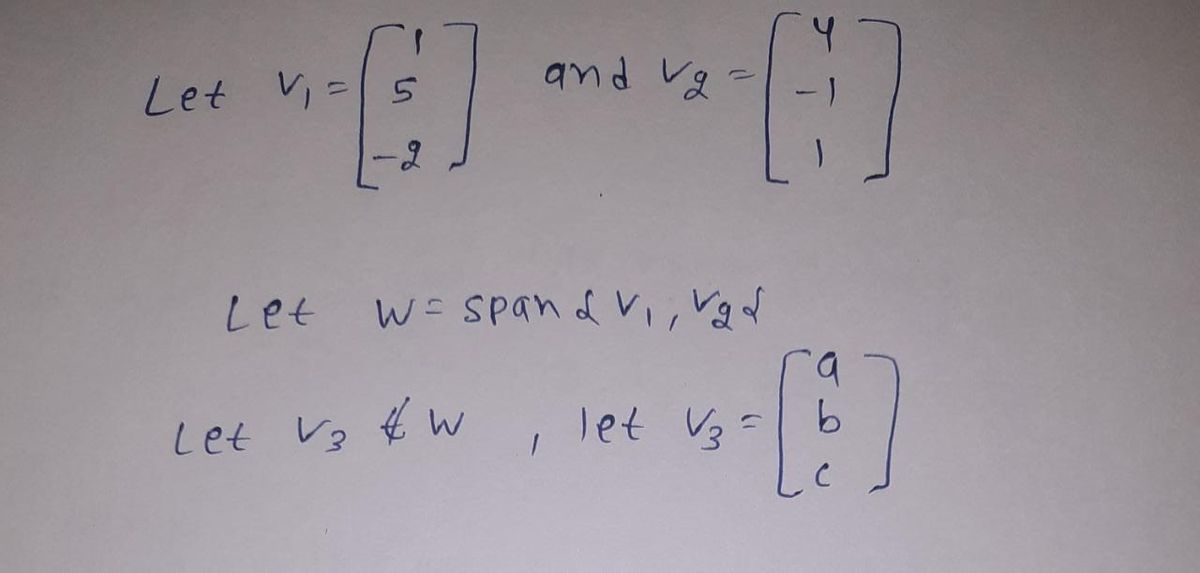 Let v₁ = [1 5 -2] and v₂ = [4 -1 1]
Let W = span {v₁, v₂}
Let v₃ ∉ W , let v₃ = [a b c]